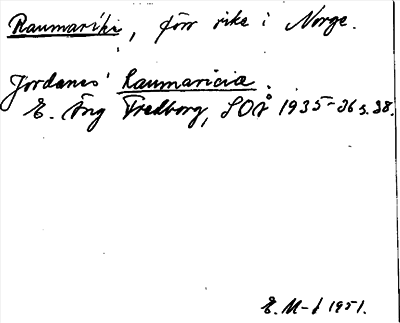 Raumaríki, förr rike i Norge.
Jordanes' Raumaricia.
E. Äng Fredborg, SOÅ 1935-36 s. 38.
E. M-f 1951.